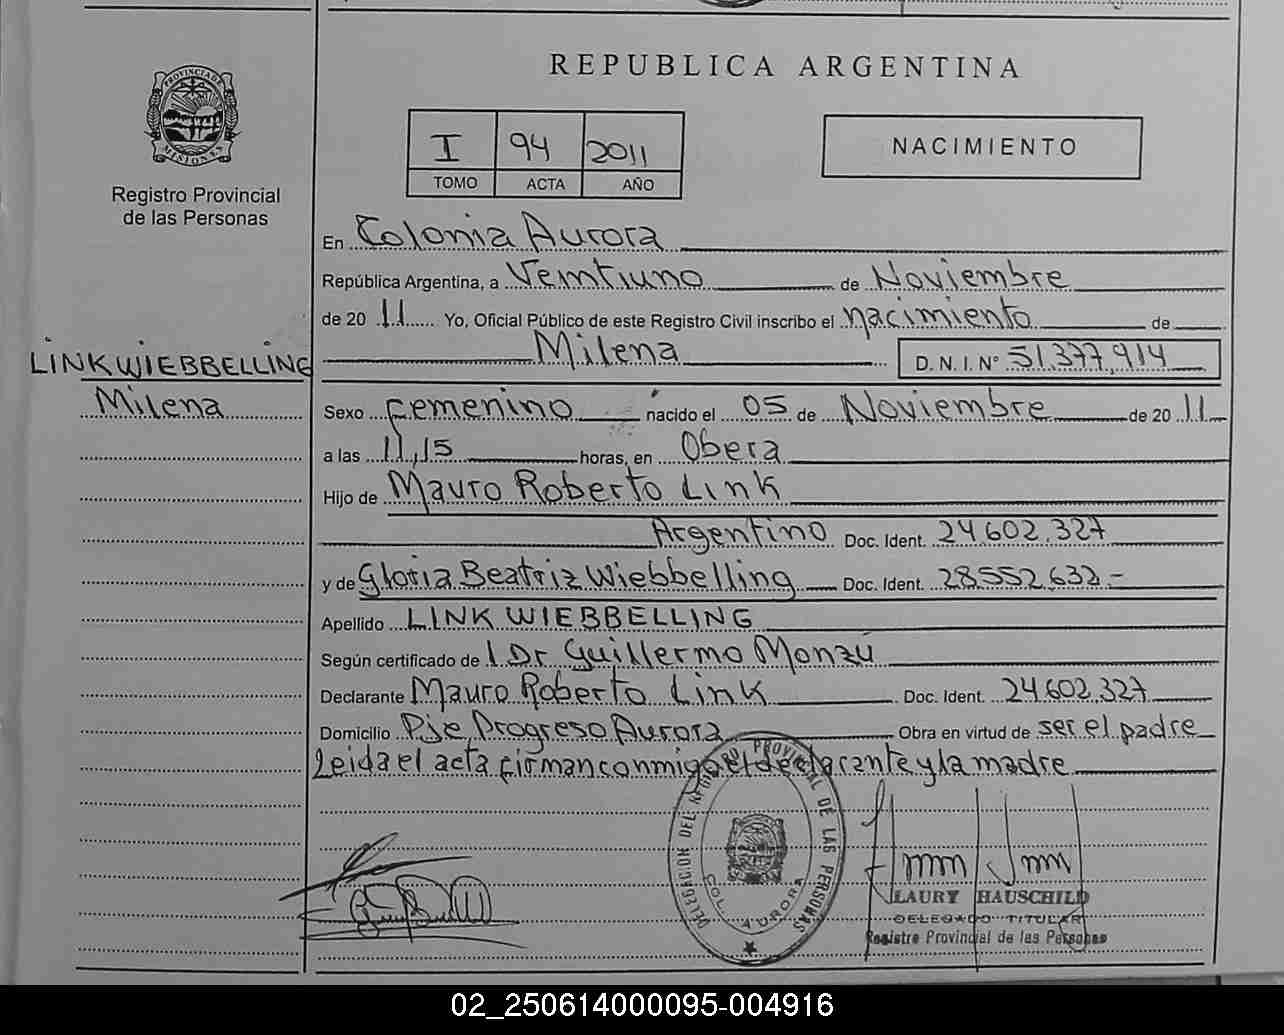 REPUBLICA ARGENTINA
PROVINCIA DE
MISIONES
Registro Provincial
de las Personas
I 94 2011
TOMO ACTA AÑO
NACIMIENTO
En Colonia Aurora
República Argentina, a Veintiuno de Noviembre
de 2011 Yo, Oficial Público de este Registro Civil inscribo el nacimiento de
Milena D. N. I. N° 51.377.914
LINK WIEBBELLING
Milena
Sexo Femenino nacido el 05 de Noviembre de 2011
a las 11,15 horas, en Obera
Hijo de Mauro Roberto Link
Argentino Doc. Ident. 24.602.327
y de Gloria Beatriz Wiebbelling Doc. Ident. 28.552.632.-
Apellido LINK WIEBBELLING
Según certificado de l Dr Guillermo Monzú
Declarante Mauro Roberto Link Doc. Ident. 24.602.327
Domicilio Pje Progreso Aurora Obra en virtud de ser el padre
Leida el acta firman conmigo el declarante y la madre
DELEGACION DEL REGISTRO PROVINCIAL DE LAS PERSONAS
COL. AURORA
LAURY HAUSCHILD
DELEGADO TITULAR
Registro Provincial de las Personas
02_250614000095-004916